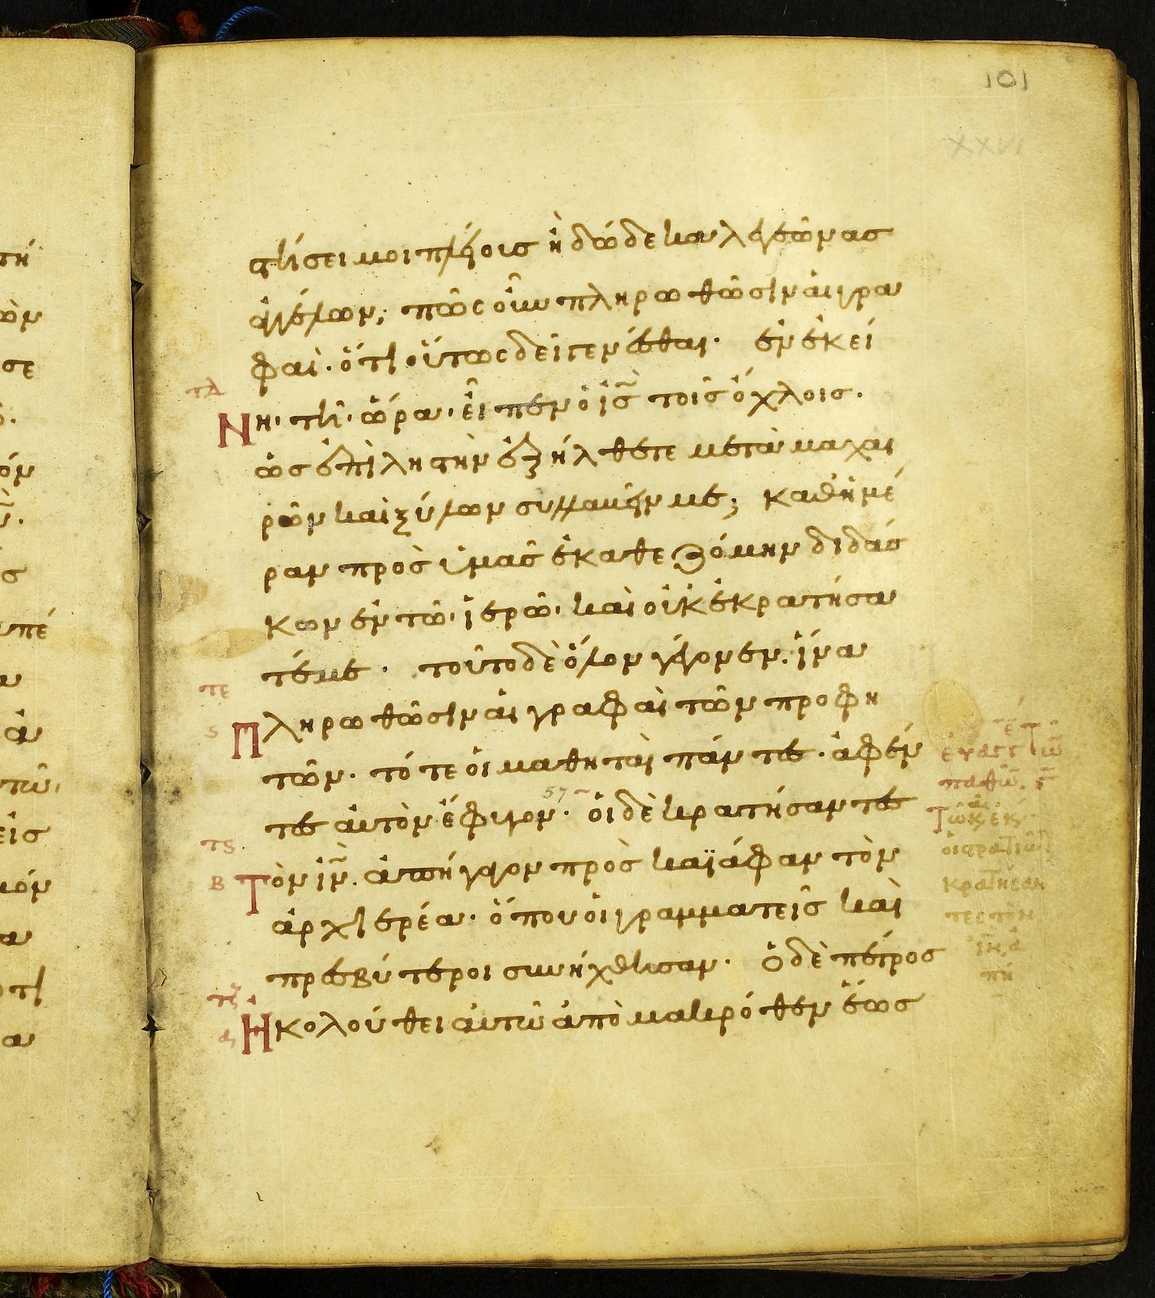 101
XXVI
στήσει μοι πλείους ἢ δώδεκα λεγεῶνας
ἀγγέλων; πῶς οὖν πληρωθῶσιν αἱ γρα
φαὶ· ὅτι οὕτως δεῖ γενέσθαι· ἐν ἐκεί
τδ
Νη· τῆ· ὥρα· εἶπεν ὁ ἰς τοῖς ὄχλοις·
ὡς ἐπὶ ληστὴν ἐξήλθετε μετὰ μαχαι
ρῶν καὶ ξύλων συλλαβεῖν με; καθημέ
ραν πρὸς ὑμᾶς ἐκαθεζόμην διδάσ
κων ἐν τῶ· ἱερῶ· καὶ οὐκ ἐκρατήσα
τέ με· τοῦτο δὲ ὅλον γέγονεν· ἵνα
τε
ς
Πληρωθῶσιν αἱ γραφαὶ τῶν προφη
τῶν· τότε οἱ μαθηταὶ πάντες· ἀφέν
τες αὐτὸν ἔφυγον· 57 οἱ δὲ κρατήσαντες
τς
β
Τὸν ἰν· ἀπήγαγον πρὸς καϊάφαν τὸν
ἀρχιερέα· ὅπου οἱ γραμματεῖς καὶ
πρεσβύτεροι συνήχθησαν· ὁ δὲ πέτρος
τζ
Ἠκολούθει αὐτῶ ἀπὸ μακρόθεν ἕως